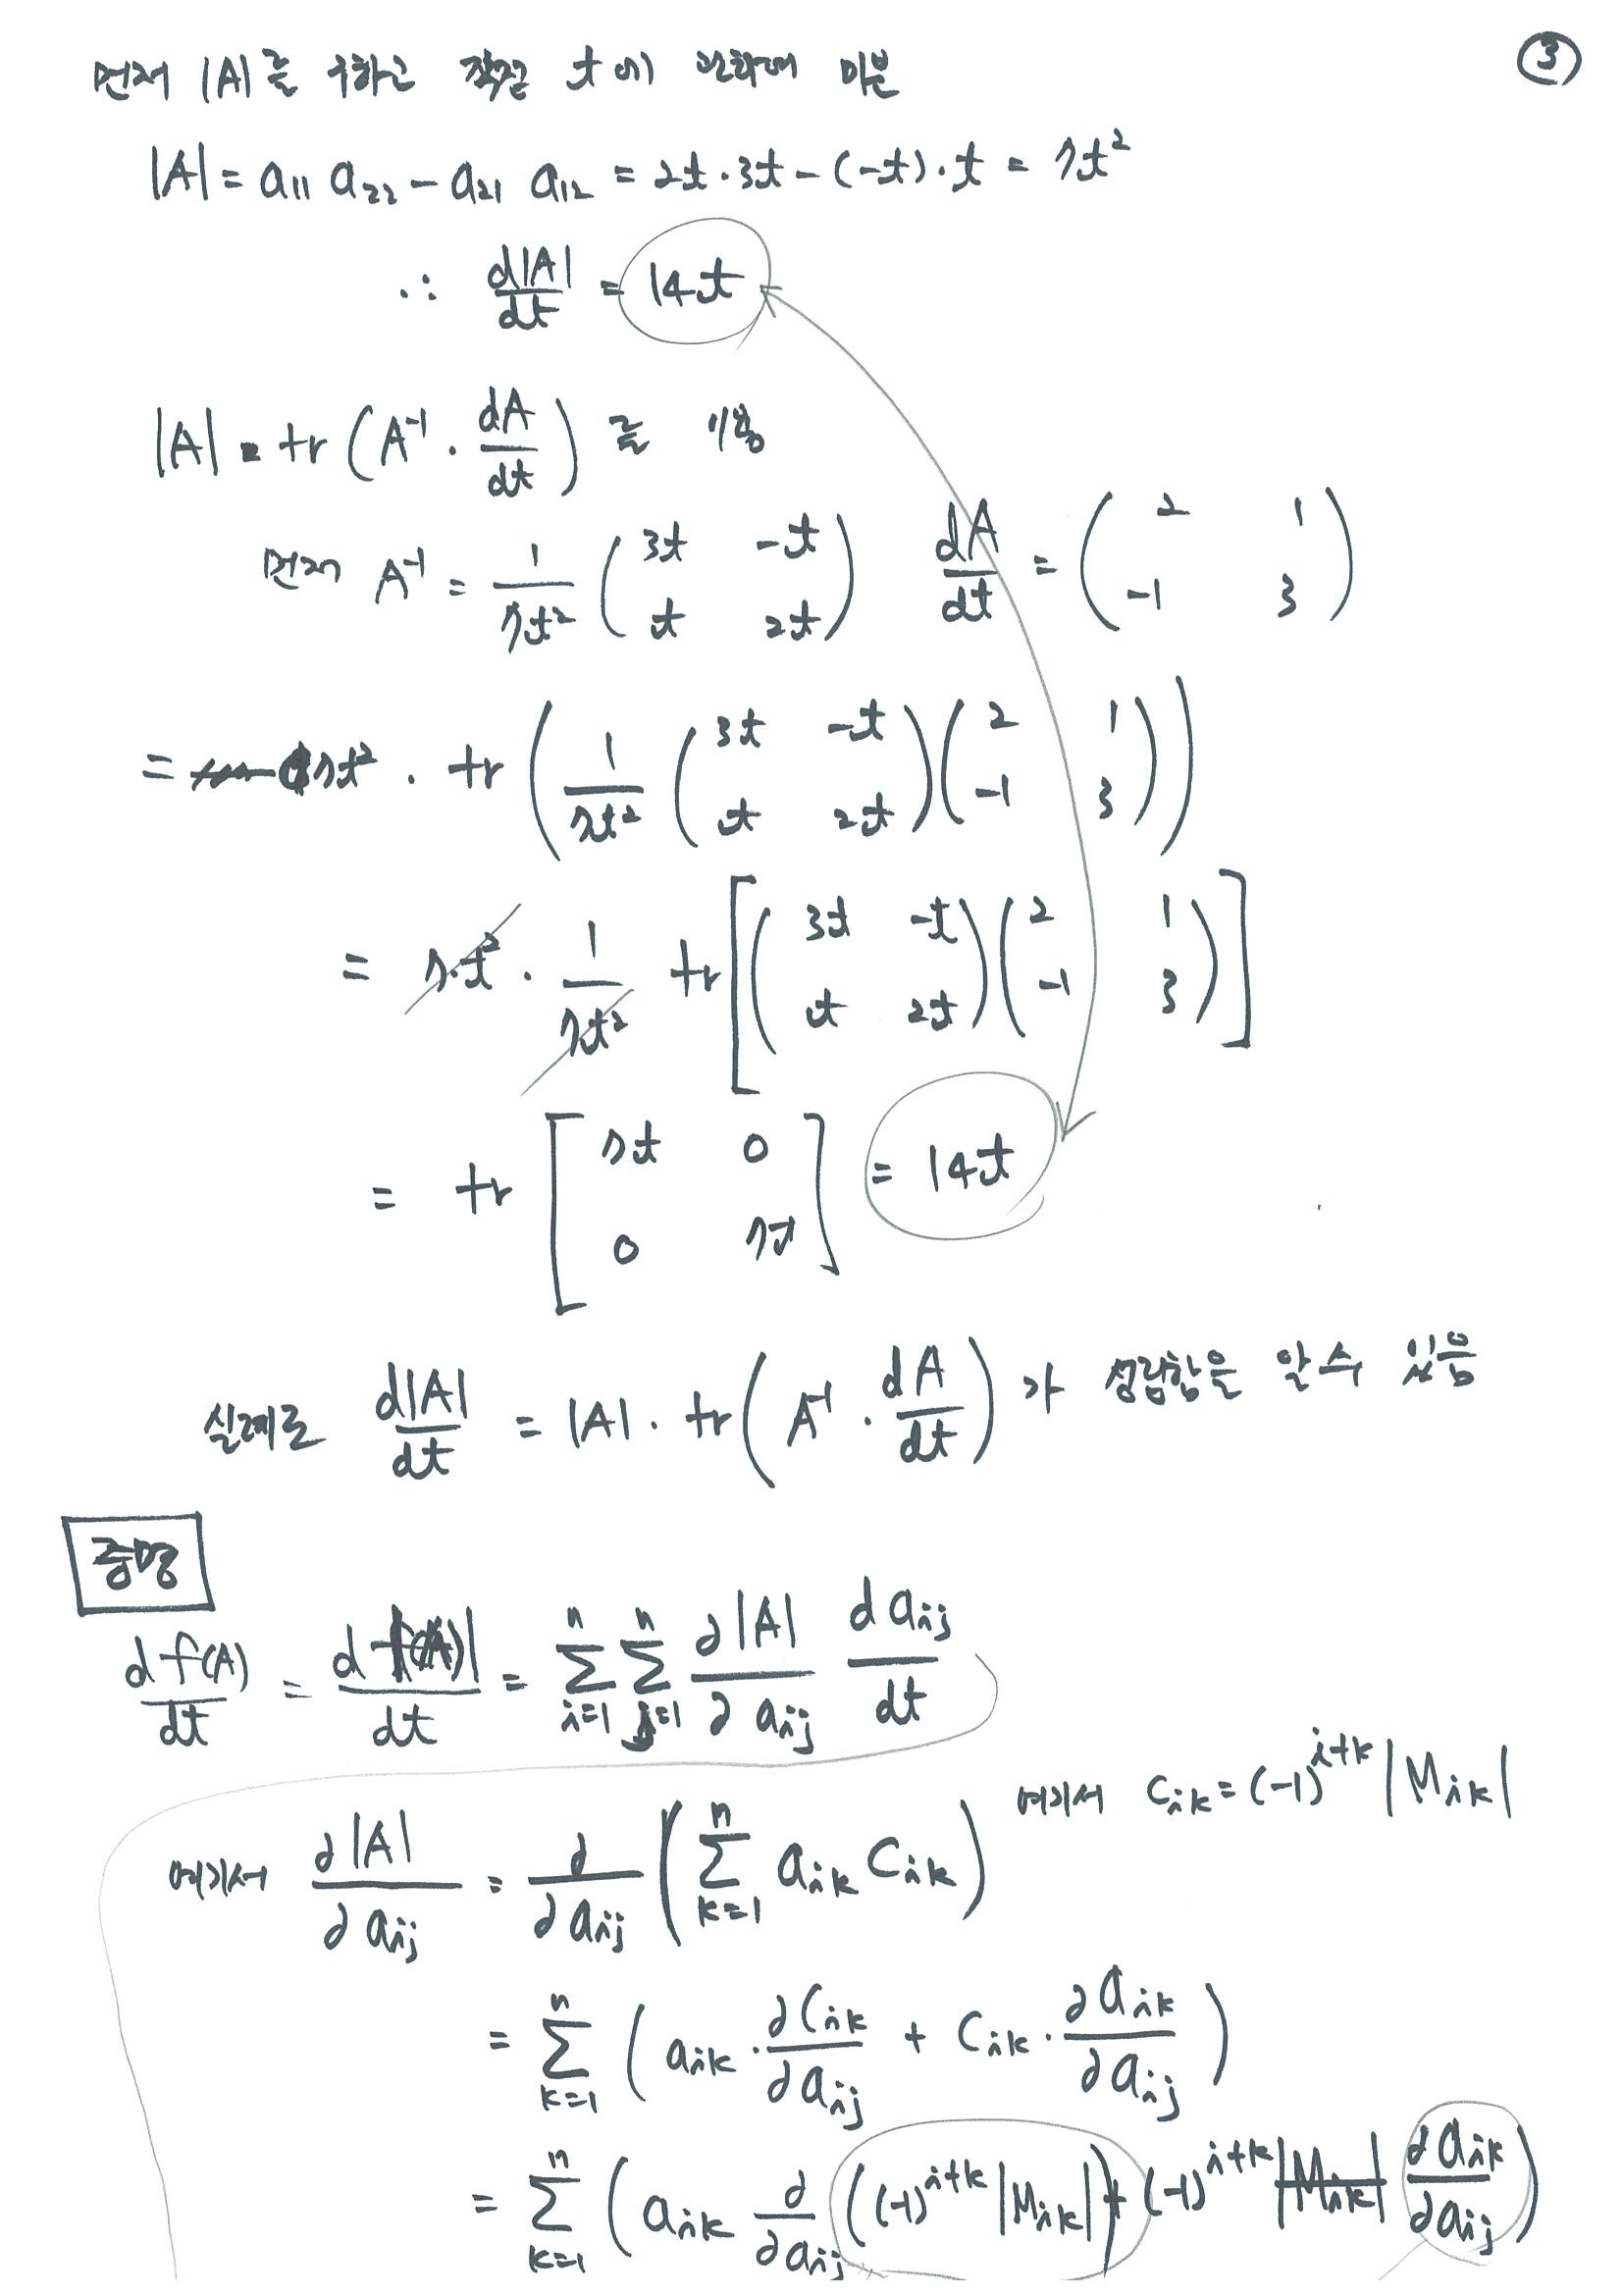 ③
먼저 |A|를 구하고 직접 t에 관하여 미분
|A| = a₁₁ a₂₂ - a₂₁ a₁₂ = 2t·3t - (-t)·t = 7t²
∴ d|A|/dt = 14t
|A| = tr(A⁻¹ · dA/dt) 를 이용
먼저 A⁻¹ = 1/7t² (3t -t ; t 2t) dA/dt = (2 1 ; -1 3)
= 7t² · tr(1/7t² (3t -t ; t 2t)(2 1 ; -1 3))
= 7t² · 1/7t² tr[(3t -t ; t 2t)(2 1 ; -1 3)]
= tr[7t 0 ; 0 7t] = 14t
실제로 d|A|/dt = |A| · tr(A⁻¹ · dA/dt) 가 성립함을 알 수 있음
증명
d f(A)/dt = d|A|/dt = Σ_{i=1}^{n} Σ_{j=1}^{n} ∂|A|/∂a_ij da_ij/dt
여기서 ∂|A|/∂a_ij = ∂/∂a_ij (Σ_{k=1}^{n} a_ik C_ik) 여기서 C_ik = (-1)^{i+k} |M_ik|
= Σ_{k=1}^{n} (a_ik · ∂C_ik/∂a_ij + C_ik · ∂a_ik/∂a_ij)
= Σ_{k=1}^{n} (a_ik ∂/∂a_ij ((-1)^{i+k} |M_ik|) + (-1)^{i+k} |M_ik| ∂a_ik/∂a_ij)